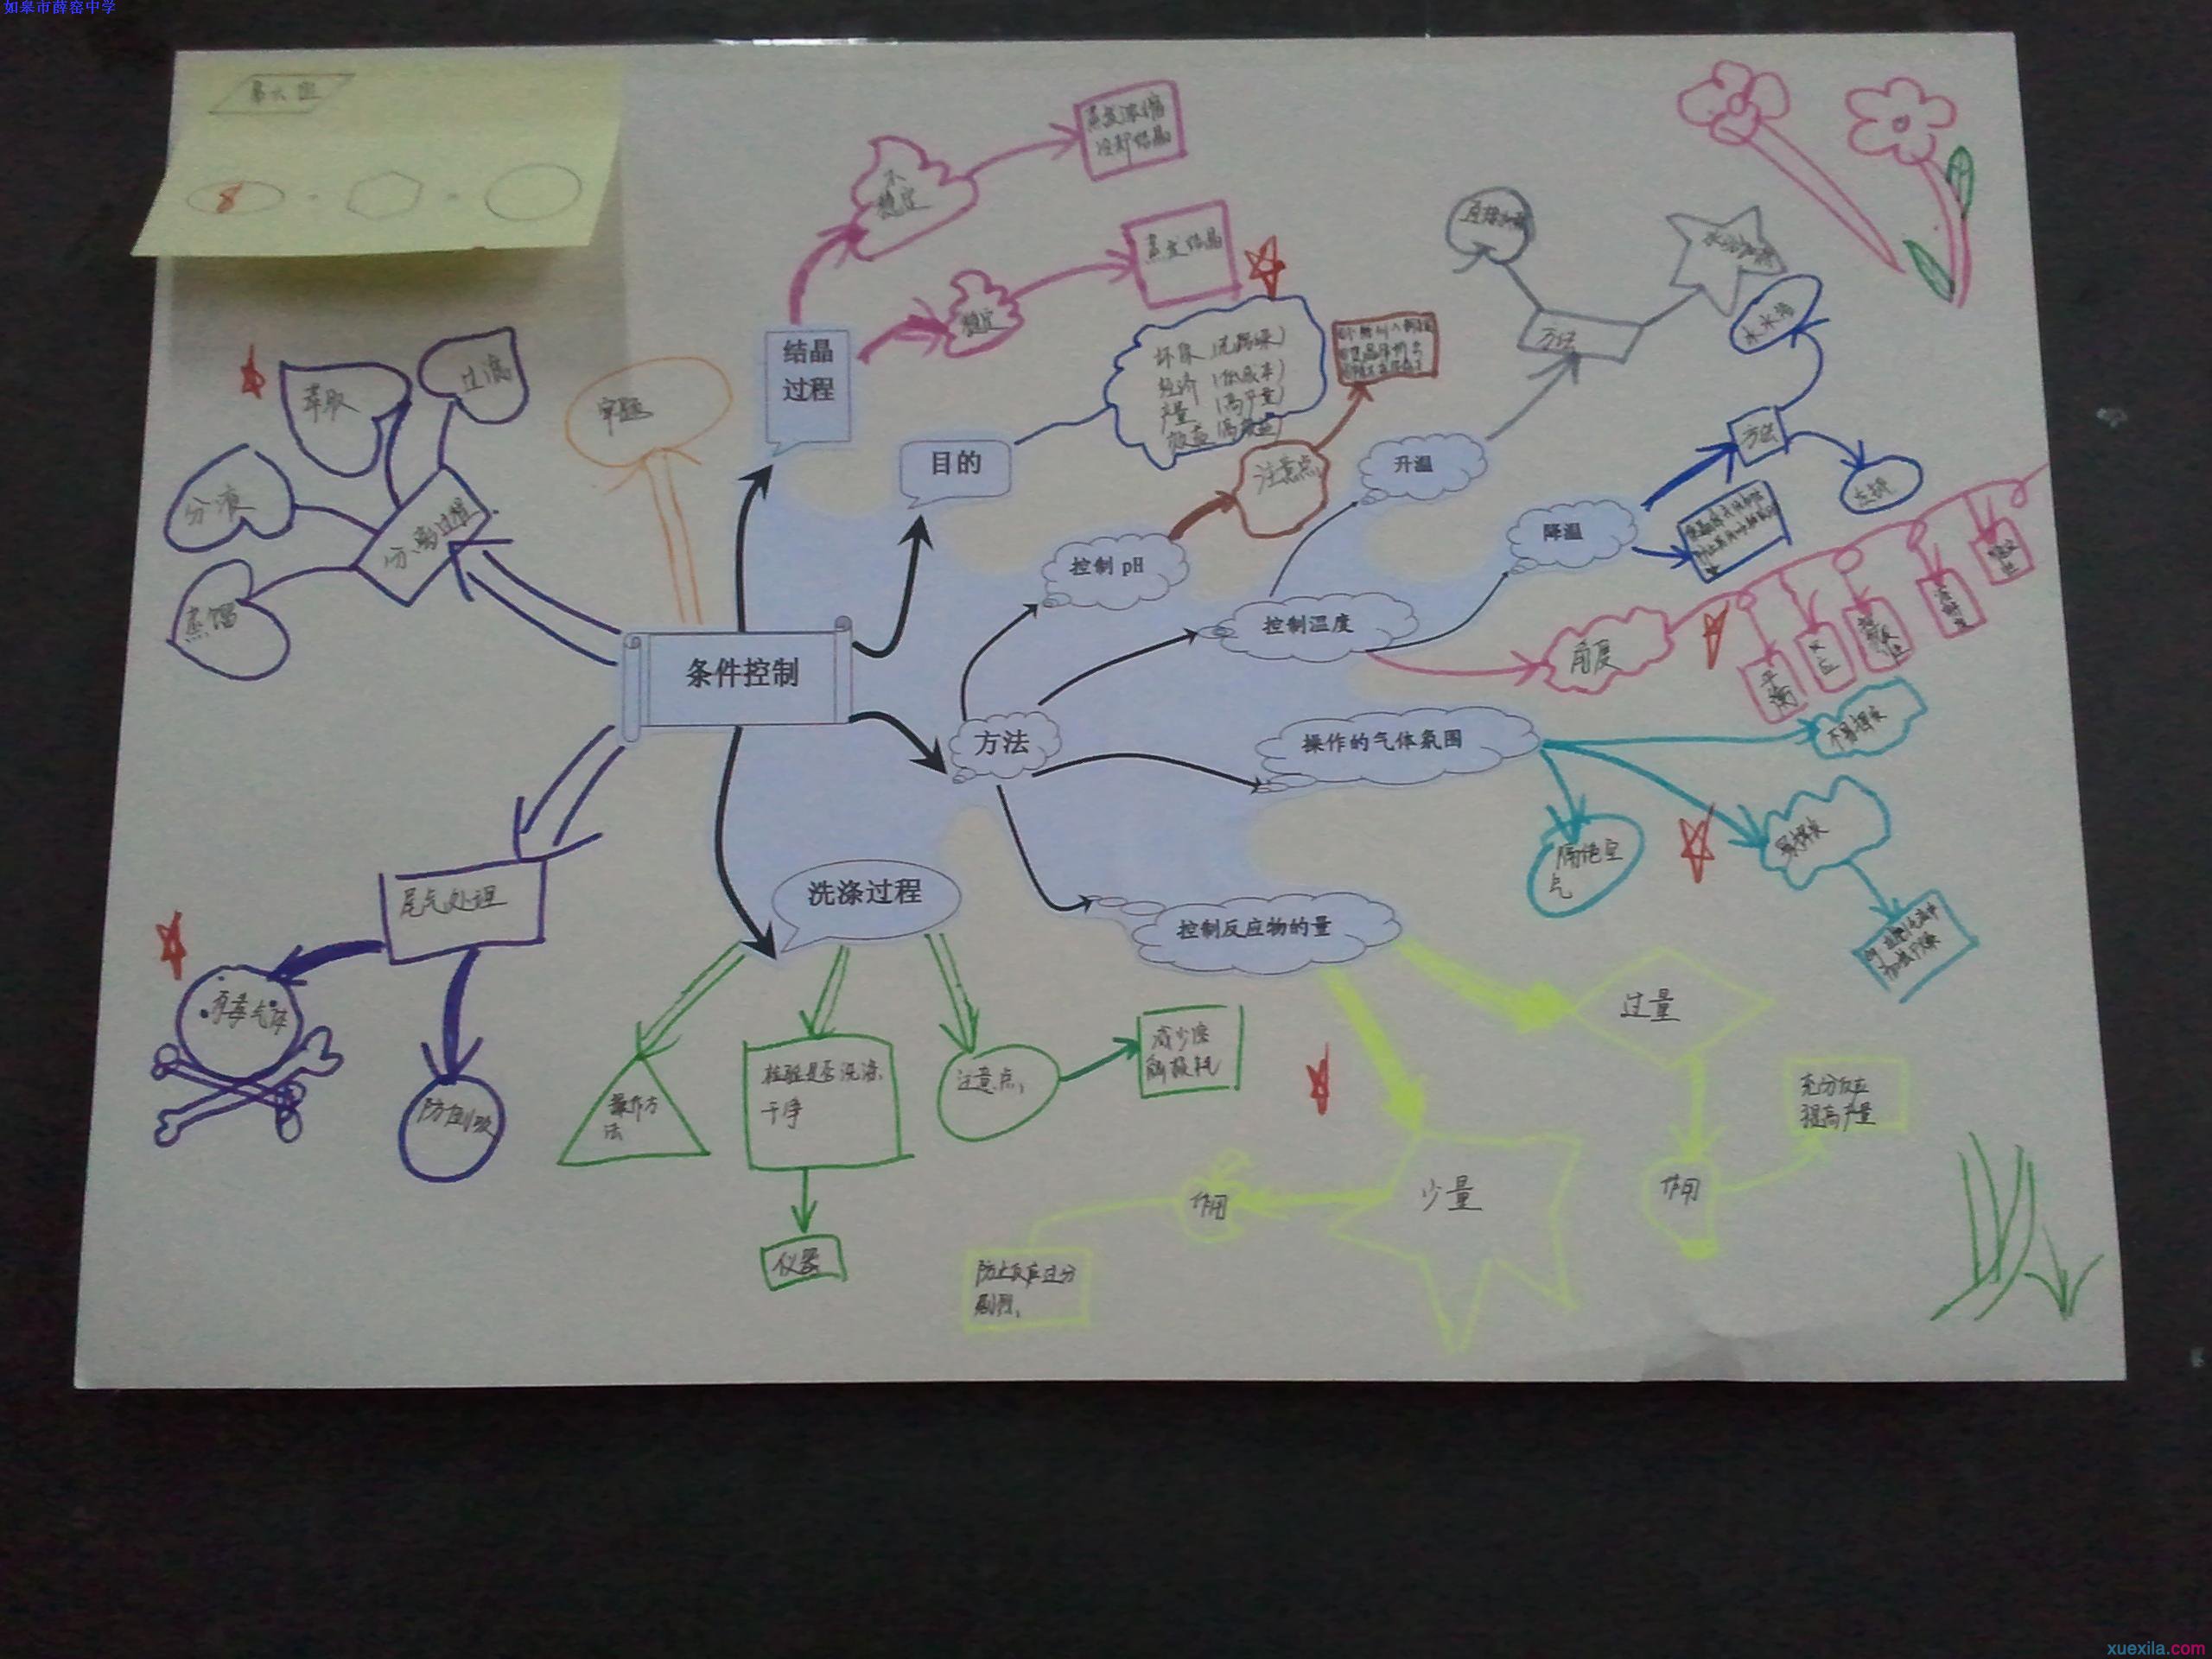 如皋市薛窑中学
第六组
8
蒸发浓缩
冷却结晶
不
稳定
蒸发结晶
稳定
结晶
过程
目的
环保（无污染）
经济（低成本）
产量（高产量）
效益（高效益）
注意点
控制 pH
方法
升温
冰水浴
方法
降温
控制温度
角度
平衡
反应
萃取
过滤
分液
蒸馏
分离过程
审题
条件控制
方法
操作的气体氛围
不易潮解
隔绝空
气
控制反应物的量
洗涤过程
尾气处理
有毒气体
防倒吸
操作方
法
检验是否洗涤
干净
仪器
注意点
减少溶
解损耗
过量
作用
充分反应
提高产量
少量
作用
防止反应过分
剧烈
xuexila.com